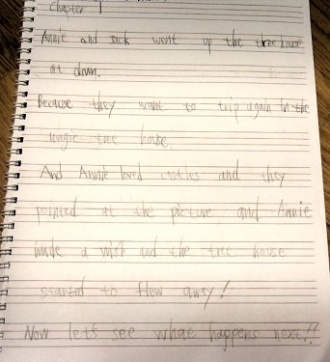 Chapter 1
Annie and Jack went up the tree house
at dawn.
Because they want to trip again in the
magic tree house.
And Annie loved castles and they
pointed at the picture and Annie
made a wish and the tree house
started to flow away!
Now let's see what happens next!!